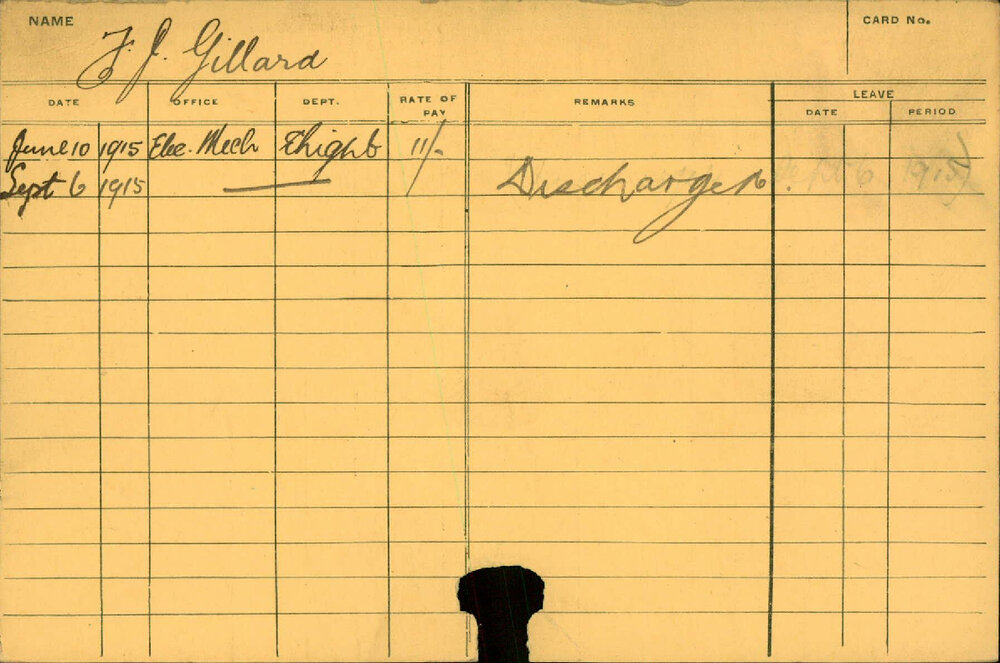 NAME F. J. Gillard CARD No.
DATE OFFICE DEPT. RATE OF PAY REMARKS LEAVE
DATE PERIOD
June 10 1915 Elec. Mech 11/-
Sept 6 1915 Discharged.